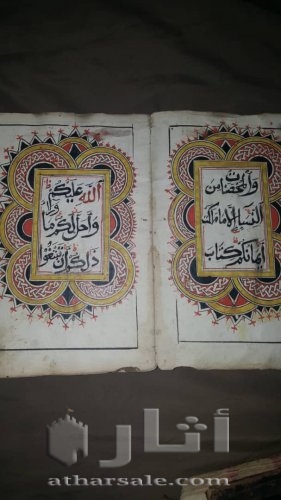 والمحصنت من
النسا الا ما ملكت
ايمانكم كتاب
الله عليكم
واحل لكم ما
ذلكم ان تبتغوا
أثار
atharsale.com